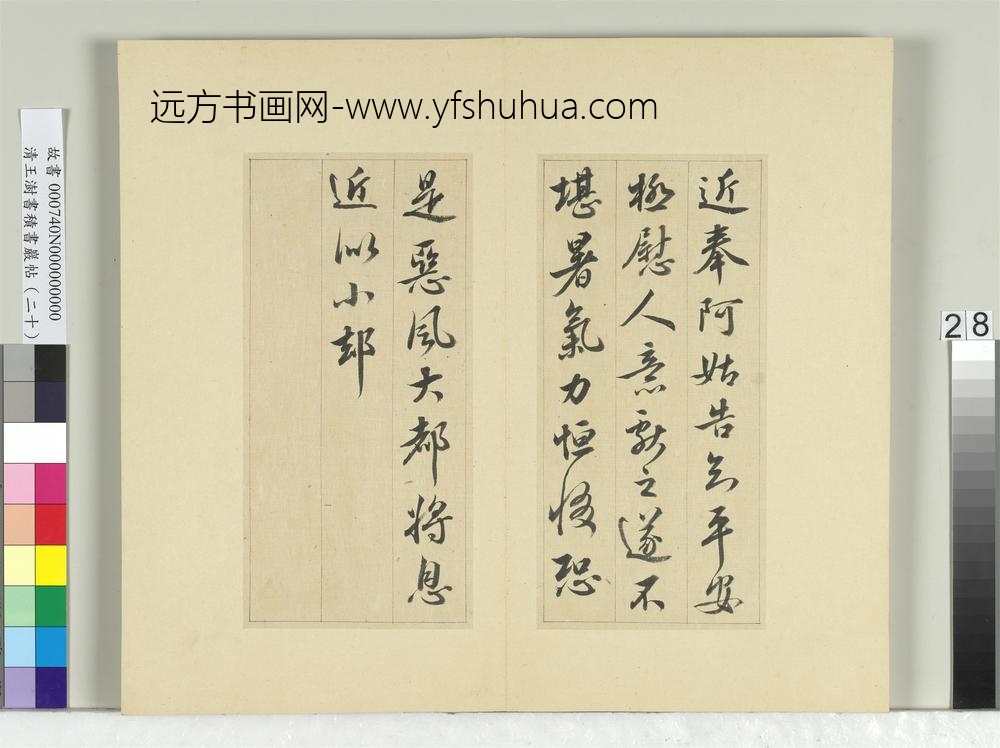 远方书画网-www.yfshuhua.com
近奉阿姑告知平安
極慰人意獻之遂不
堪暑氣力恒惙恐
是惡風大都將息
近似小却
故書 000740N000000000
清王澍書積書巖帖（二十）
28